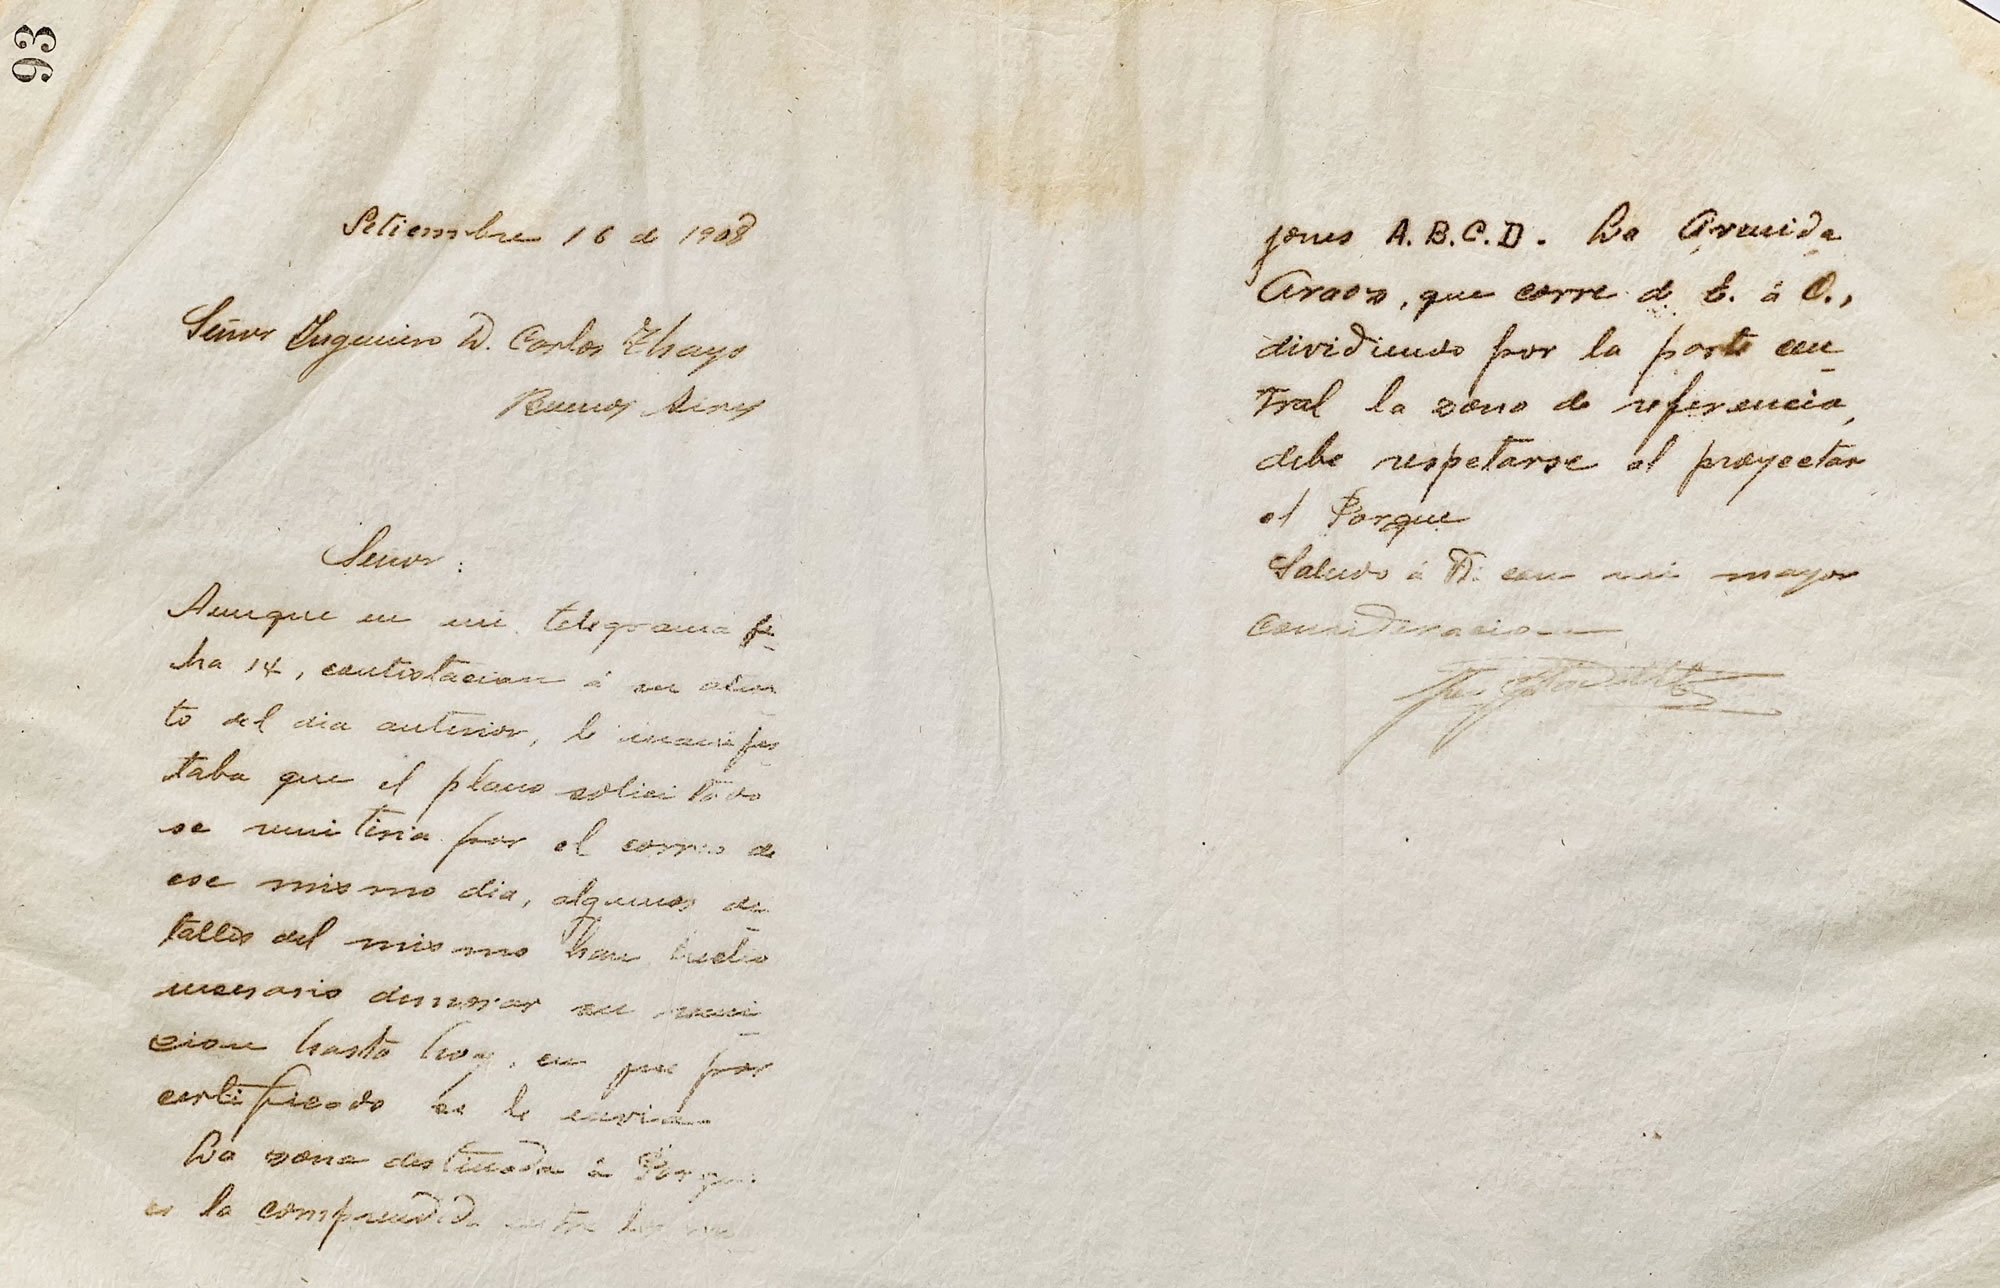 93
Setiembre 16 de 1908
Señor Ingeniero D. Carlos Thays
Buenos Aires
Señor:
Aunque en mi telegrama fe-
cha 14, contestacion á su aten-
to del dia anterior, le manifes-
taba que el plano solicitado
se remitiria por el correo de
ese mismo dia, algunos de-
talles del mismo han hecho
necesario demorar su remi-
sion hasta hoy, en que por
certificado se le envia.
La zona destinada á Parque
es la comprendida entre los
jones A.B.C.D. La Avenida
Araoz, que corre de E. á O.,
dividiendo por la parte cen-
tral la zona de referencia,
debe respetarse al proyectar
el Parque
Saludo á Vd. con mi mayor
consideracion